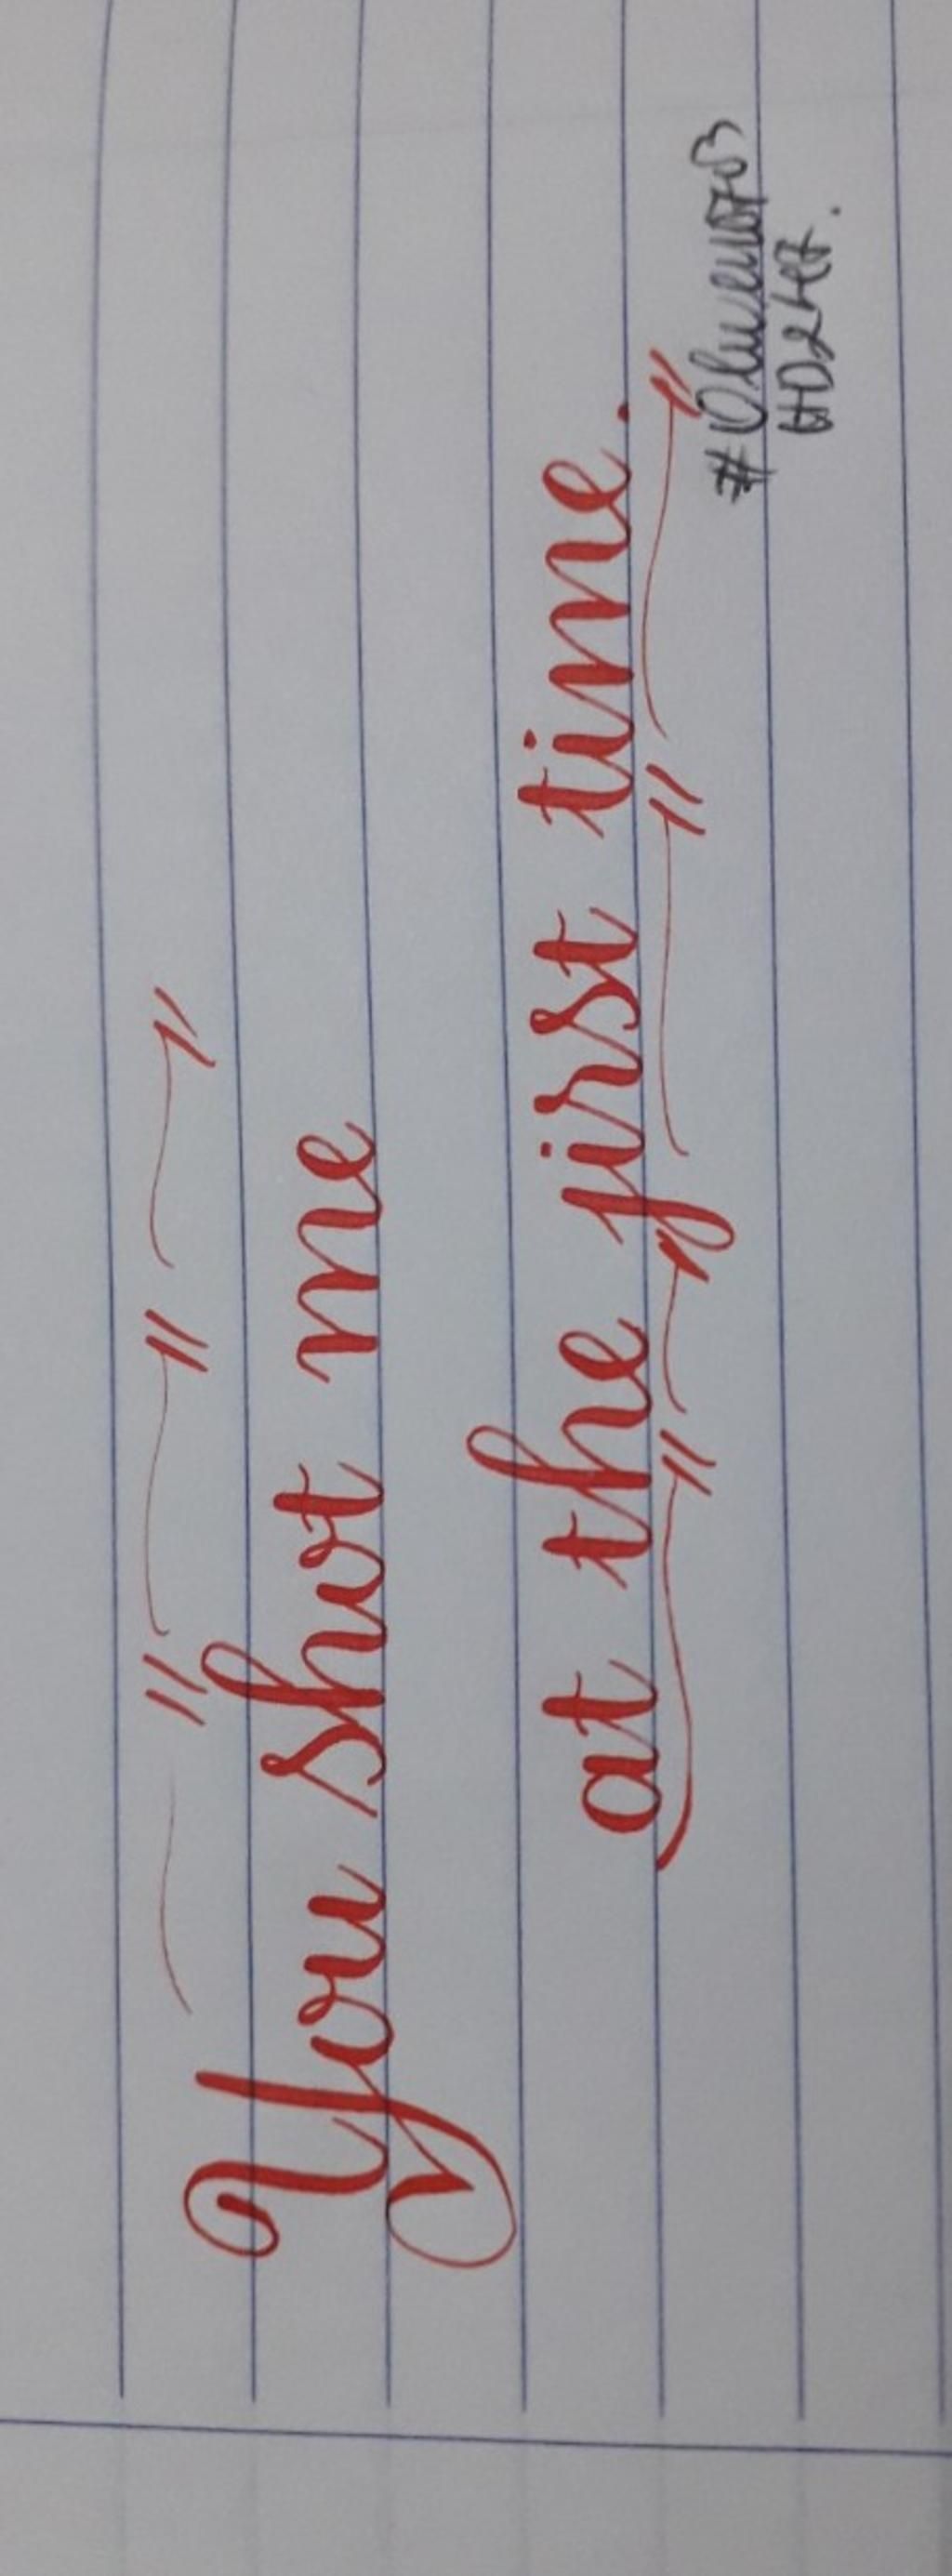 You shot me
at the first time.